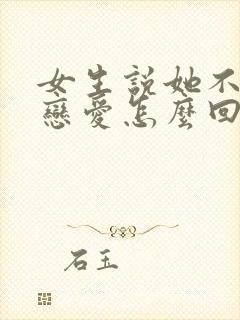 女生說她不
戀愛怎麼回
石玉